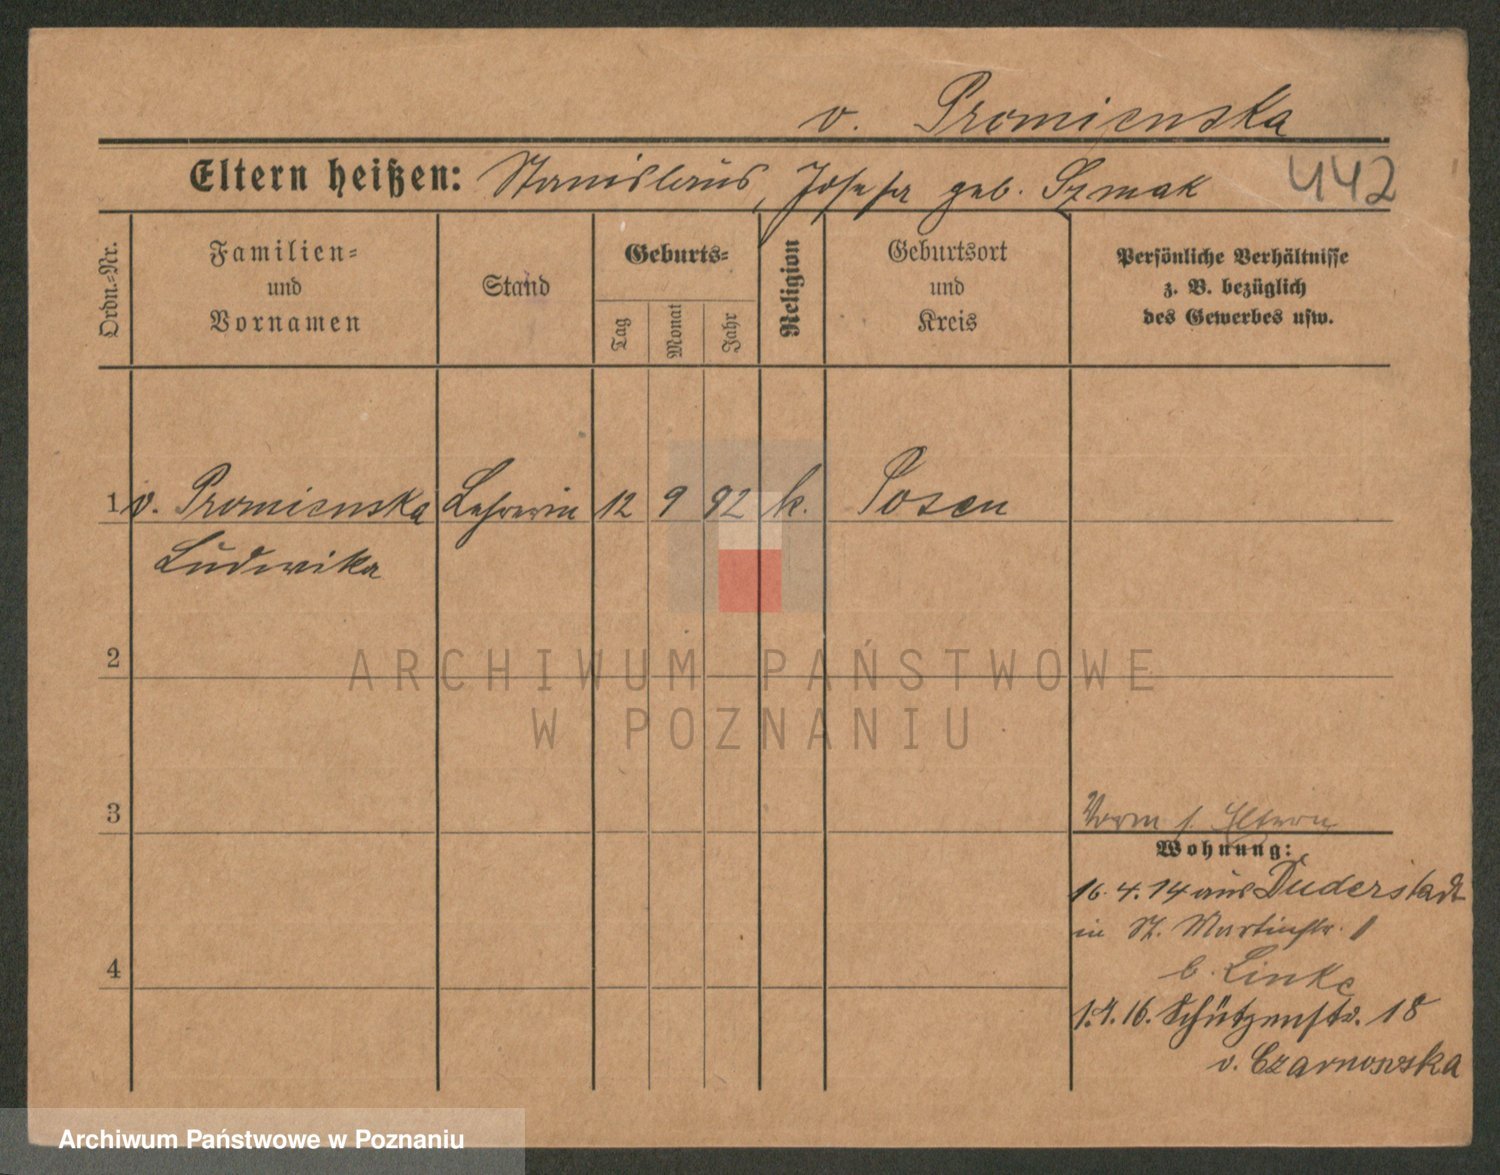 v. Promienska
Eltern heißen: Stanislaus, Josefa geb. Szmak
442
Ordn.-Nr.
Familien-
und
Vornamen
Stand
Geburts-
Tag
Monat
Jahr
Religion
Geburtsort
und
Kreis
Persönliche Verhältnisse
z. B. bezüglich
des Gewerbes usw.
1 v. Promienska Lehrerin 12 9 92 k. Posen
Ludwika
2
ARCHIWUM PAŃSTWOWE
W POZNANIU
3
Vorm s. Eltern
Wohnung:
16. 4. 14 aus Duderstadt
in St. Martinstr. 1
b. Linke
4
1. 4. 16. Schützenstr. 18
v. Czarnowska
Archiwum Państwowe w Poznaniu